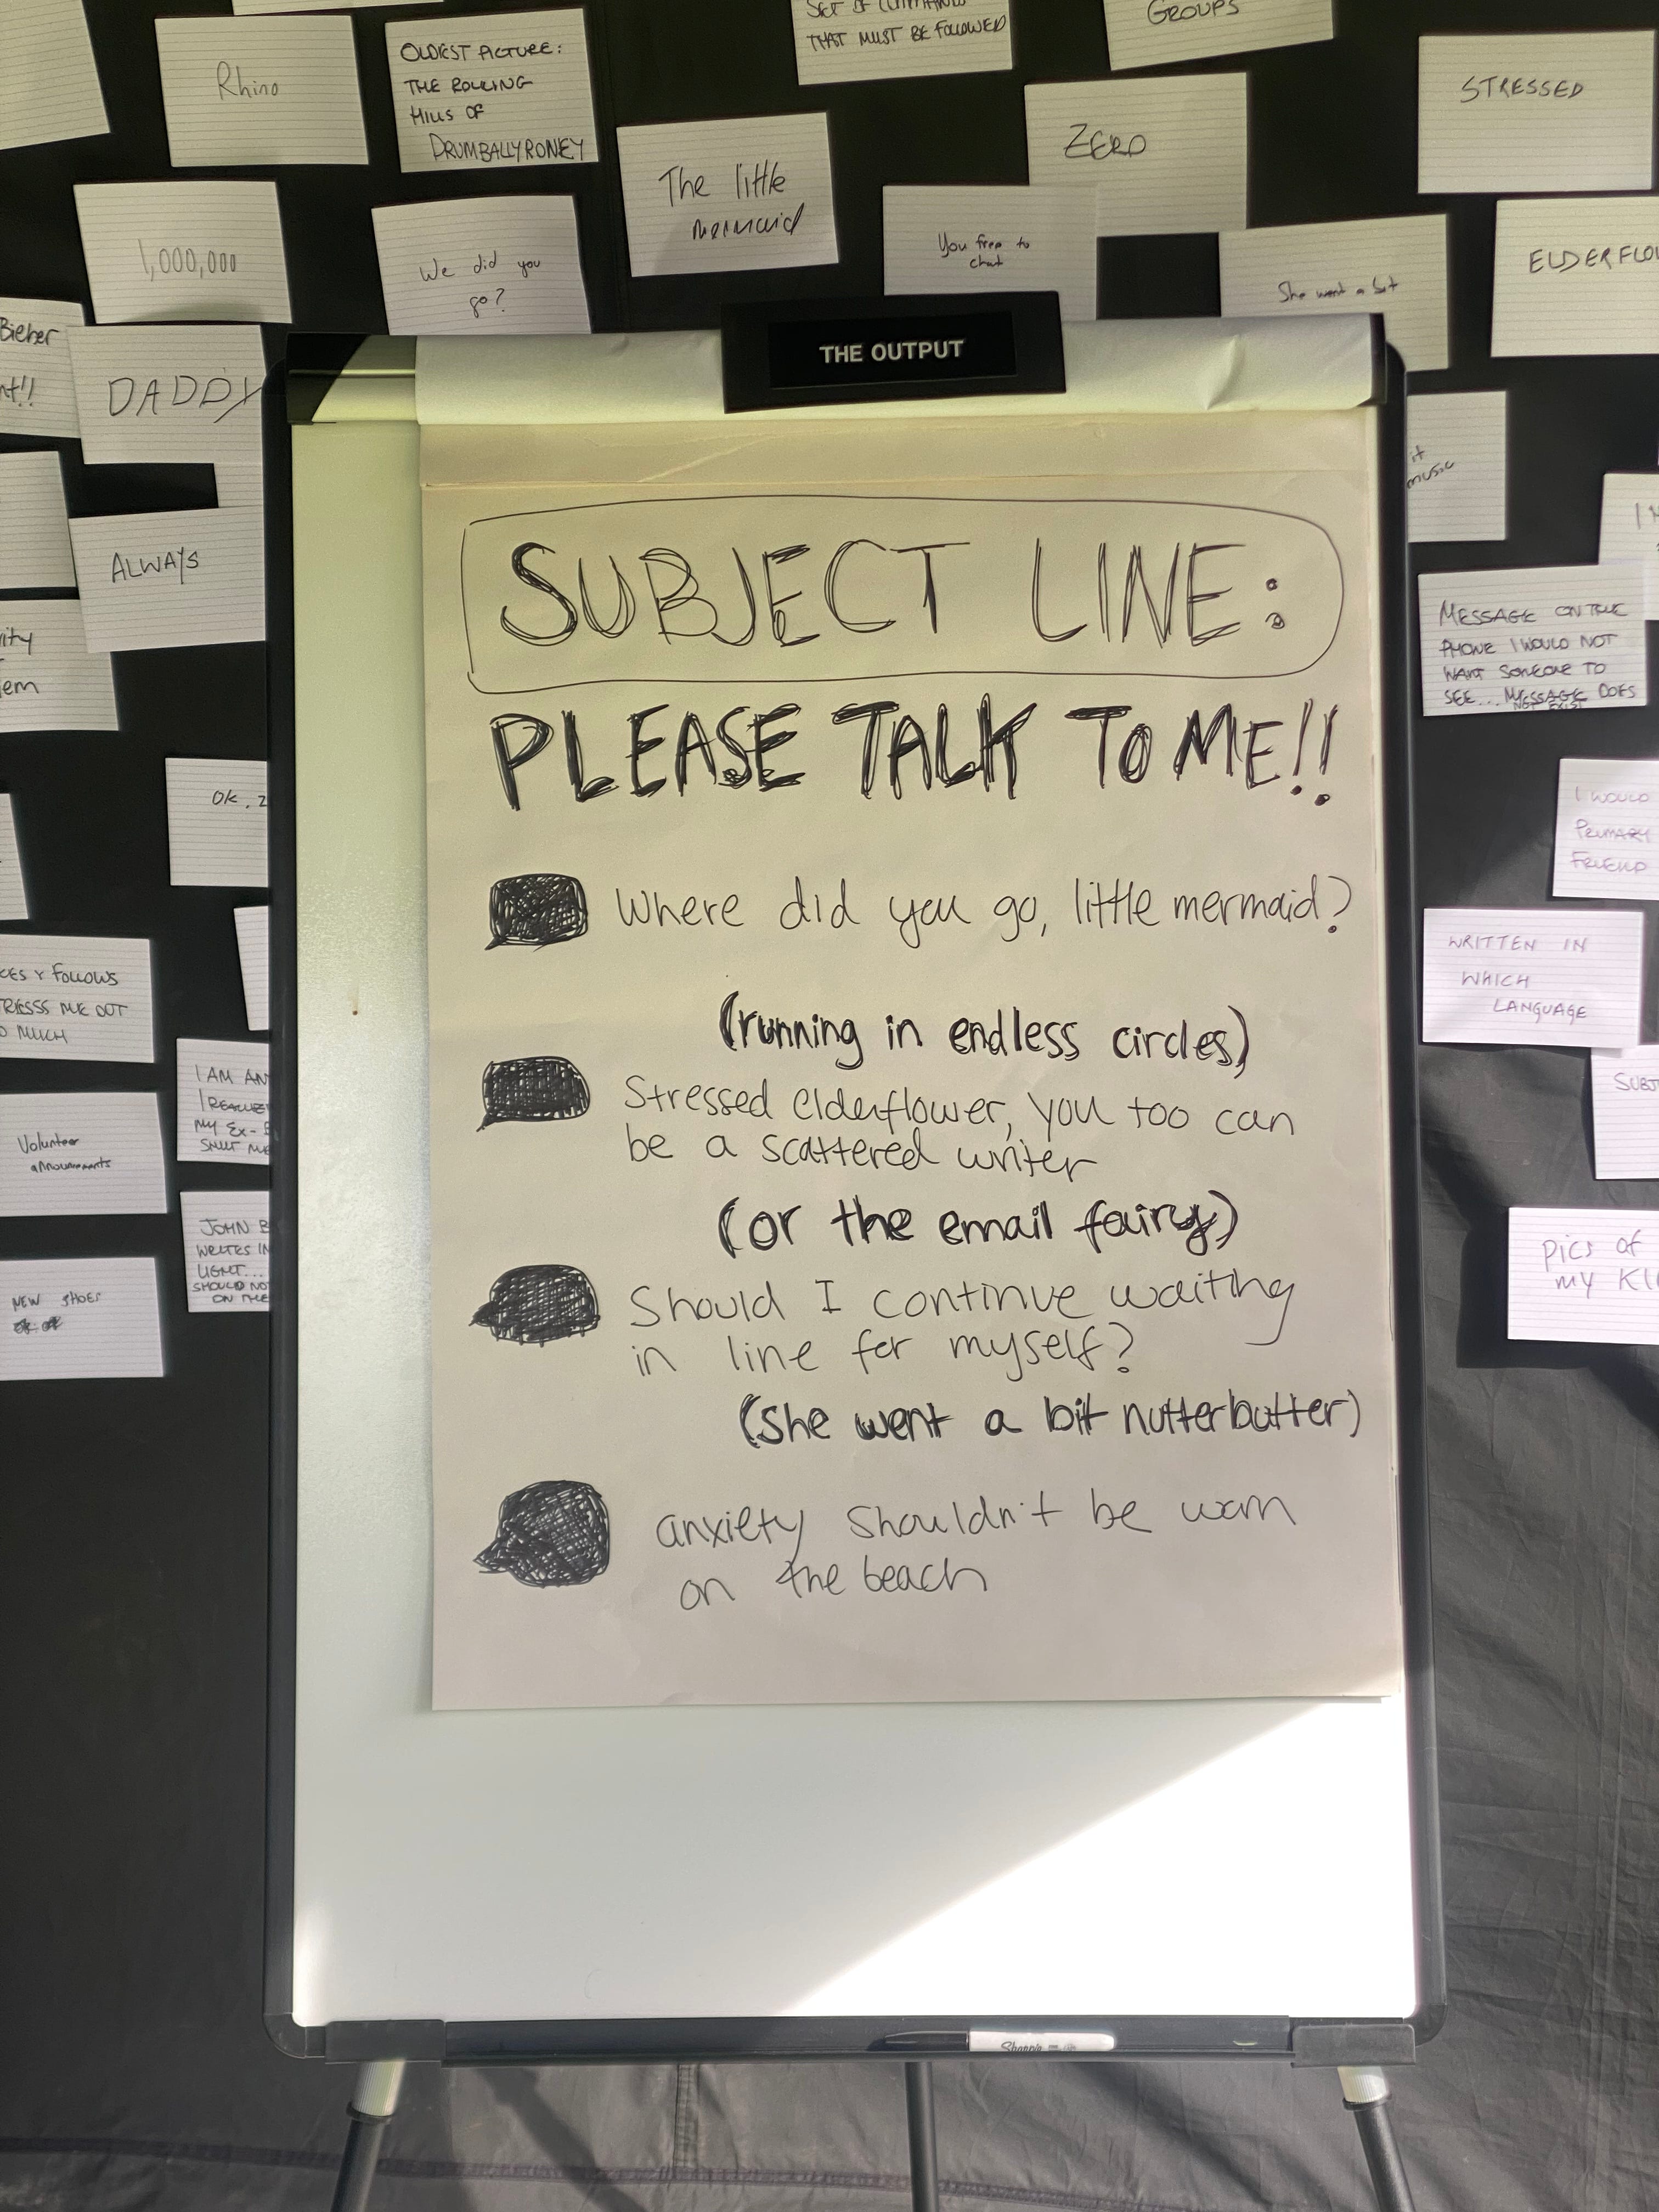 SET OF COMMANDS
THAT MUST BE FOLLOWED
GROUPS
Rhino
OLDEST PICTURE:
THE ROLLING
HILLS OF
DRUMBALLYRONEY
The little
mermaid
ZERO
STRESSED
1,000,000
We did you
go?
You free to
chat
She went a bit
ELDERFLO
Bieber
nt!!
DADDY
ALWAYS
it
music
rity
em
OK, 2
MESSAGE ON THE
PHONE I WOULD NOT
WANT SOMEONE TO
SEE... MESSAGE DOES
NOT EXIST
I WOULD
PRIMARY
FRIEND
WRITTEN IN
WHICH
LANGUAGE
CES & FOLLOWS
TRESSS ME OUT
O MUCH
I AM AN
I REALIZE
MY EX-B
SHUT ME
SUBJ
Volunteer
announcements
JOHN B
WRITES IN
LIGHT...
SHOULD NOT
ON THE
NEW SHOES
pics of
my KI
THE OUTPUT
SUBJECT LINE:
PLEASE TALK TO ME!!
Where did you go, little mermaid?
(running in endless circles)
Stressed elderflower, you too can
be a scattered writer
(or the email fairy)
Should I continue waiting
in line for myself?
(she went a bit nutterbutter)
anxiety shouldn't be worn
on the beach
Sharpie